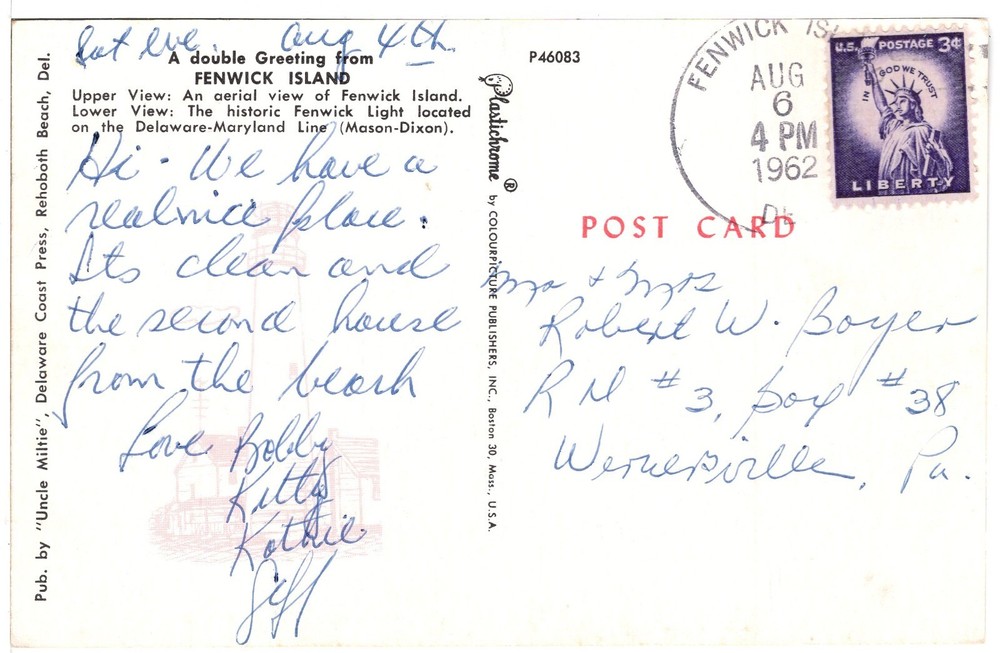 Sat eve. Aug 4th.
A double Greeting from
FENWICK ISLAND
Upper View: An aerial view of Fenwick Island.
Lower View: The historic Fenwick Light located
on the Delaware-Maryland Line (Mason-Dixon).
Hi - We have a
real nice place.
Its clean and
the second house
from the beach
Love Bobby
Kitty
Kathie
Jeff
Pub. by "Uncle Miltie", Delaware Coast Press, Rehoboth Beach, Del.
P46083
Plastichrome ® by COLOURPICTURE PUBLISHERS, INC., Boston 30, Mass., U.S.A.
FENWICK ISL
AUG
6
4 PM
1962
DE
U.S. POSTAGE 3¢
IN GOD WE TRUST
LIBERTY
POST CARD
Mr + Mrs
Robert W. Boyer
R D #3, Box #38
Wernersville, Pa.